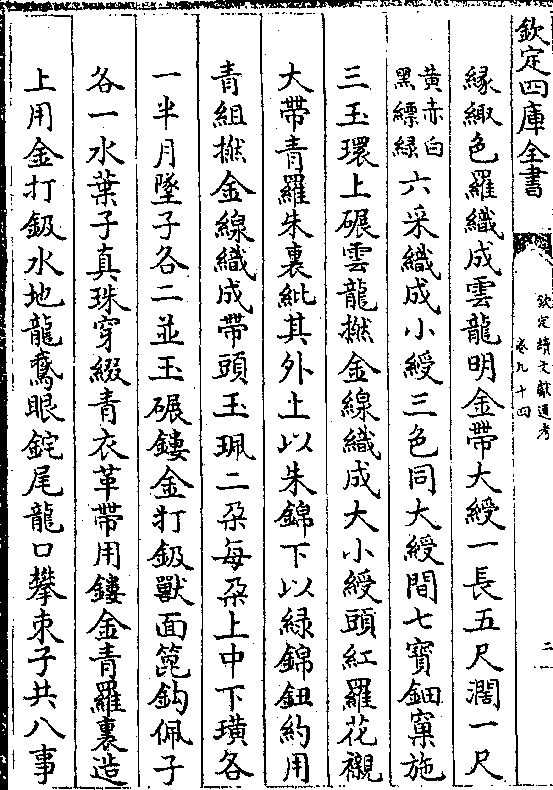 欽定四庫全書
欽定續文獻通考
卷九十四
二
緣緅色羅織成雲龍明金帶大綬一長五尺濶一尺
黃赤白
黑縹綠
六采織成小綬三色同大綬間七寶鈿窠施
三玉環上碾雲龍撚金線織成大小綬頭紅羅花襯
大帶青羅朱裏紕其外上以朱錦下以綠錦鈕約用
青組撚金線織成帶頭玉珮二朶每朶上中下璜各
一半月墜子各二並玉碾鏤金打鈒獸面篦鈎佩子
各一水葉子真珠穿綴青衣革帶用鏤金青羅裏造
上用金打鈒水地龍鵞眼錠尾龍口攀束子共八事